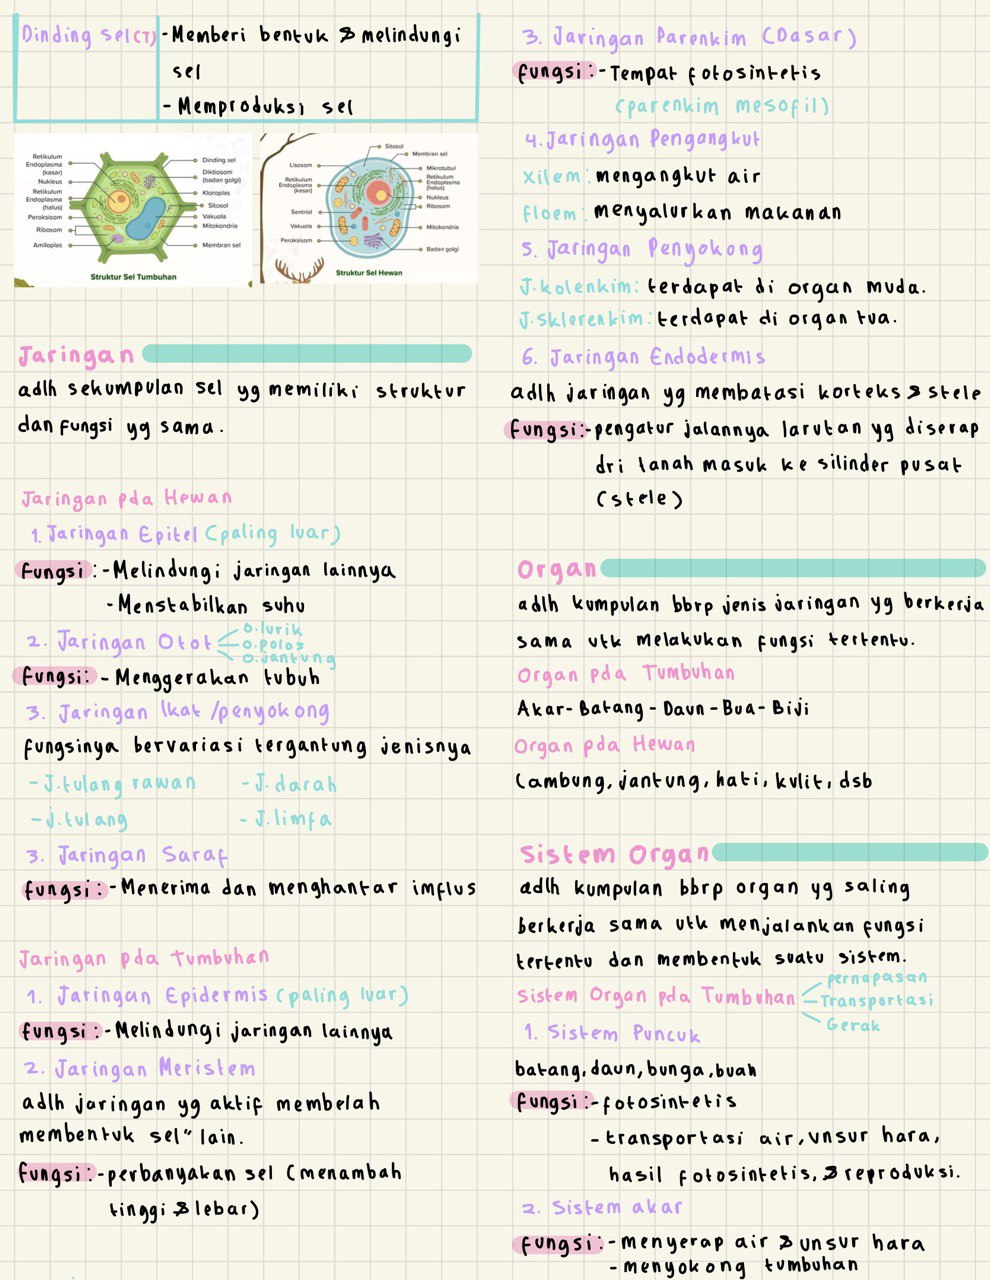 Dinding sel(T) -Memberi bentuk & melindungi
sel
-Memproduksi sel
Retikulum
Endoplasma
(kasar)
Nukleus
Retikulum
Endoplasma
(halus)
Peroksisom
Ribosom
Amiloplas
Dinding sel
Diktiosom
(badan golgi)
Kloroplas
Sitosol
Vakuola
Mitokondria
Membran sel
Struktur Sel Tumbuhan
Lisosom
Retikulum
Endoplasma
(kasar)
Sentriol
Vakuola
Peroksisom
Sitosol
Membran sel
Mikrotubul
Retikulum
Endoplasma
(halus)
Nukleus
Ribosom
Mitokondria
Badan golgi
Struktur Sel Hewan
Jaringan
adlh sekumpulan sel yg memiliki struktur
dan fungsi yg sama.
Jaringan pda Hewan
1. Jaringan Epitel (paling luar)
fungsi: -Melindungi jaringan lainnya
-Menstabilkan suhu
2. Jaringan Otot
o.lurik
o.polos
o.jantung
fungsi: -Menggerakan tubuh
3. Jaringan Ikat /penyokong
fungsinya bervariasi tergantung jenisnya
-J.tulang rawan -J.darah
-j.tulang -J.limfa
3. Jaringan Saraf
fungsi: -Menerima dan menghantar implus
Jaringan pda tumbuhan
1. Jaringan Epidermis (paling luar)
fungsi: -Melindungi jaringan lainnya
2. Jaringan Meristem
adlh jaringan yg aktif membelah
membentuk sel" lain.
fungsi: -perbanyakan sel (menambah
tinggi & lebar)
3. Jaringan Parenkim (Dasar)
fungsi: -Tempat fotosintetis
(parenkim mesofil)
4. Jaringan Pengangkut
xilem: mengangkut air
floem: menyalurkan makanan
5. Jaringan Penyokong
J.kolenkim: terdapat di organ muda.
J.sklerenkim: terdapat di organ tua.
6. Jaringan Endodermis
adlh jaringan yg membatasi korteks & stele
fungsi: -pengatur jalannya larutan yg diserap
dri tanah masuk ke silinder pusat
(stele)
Organ
adlh kumpulan bbrp jenis jaringan yg berkerja
sama utk melakukan fungsi tertentu.
Organ pda Tumbuhan
Akar-Batang-Daun-Bua-Biji
Organ pda Hewan
Lambung, jantung, hati, kulit, dsb
Sistem Organ
adlh kumpulan bbrp organ yg saling
berkerja sama utk menjalankan fungsi
tertentu dan membentuk suatu sistem.
Sistem Organ pda Tumbuhan
pernapasan
Transportasi
Gerak
1. Sistem Puncuk
batang, daun, bunga, buah
fungsi: -fotosintetis
-transportasi air, unsur hara,
hasil fotosintetis, & reproduksi.
2. Sistem akar
fungsi: -menyerap air & unsur hara
-menyokong tumbuhan